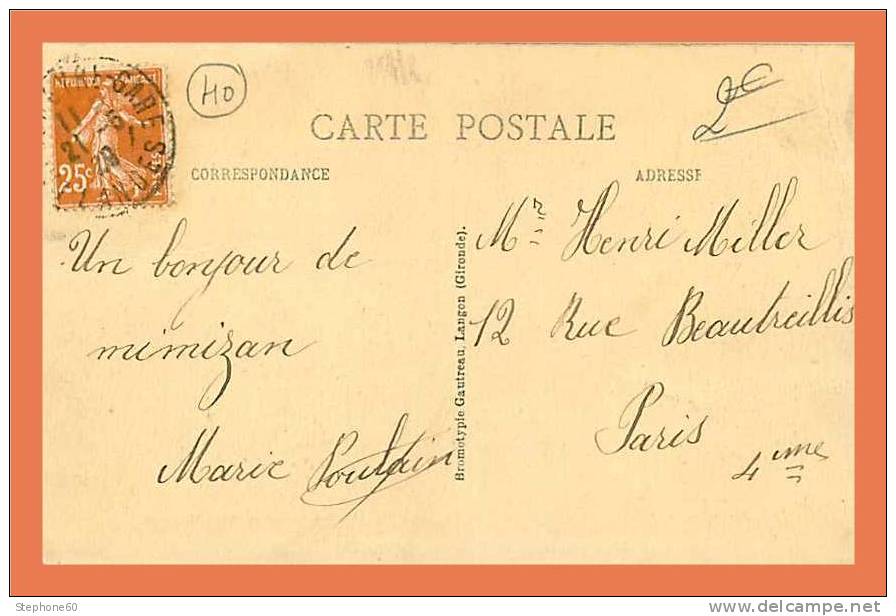 40
2
CARTE POSTALE
CORRESPONDANCE
ADRESSE
Un bonjour de
mimizan
Marie Poultain
Bromotypie Gautreau, Langon (Gironde).
Mr Henri Miller
12 Rue Beautreillis
Paris
4eme
25c
GARE
21 -6
28
LANDES
Stephone60
www.delcampe.net